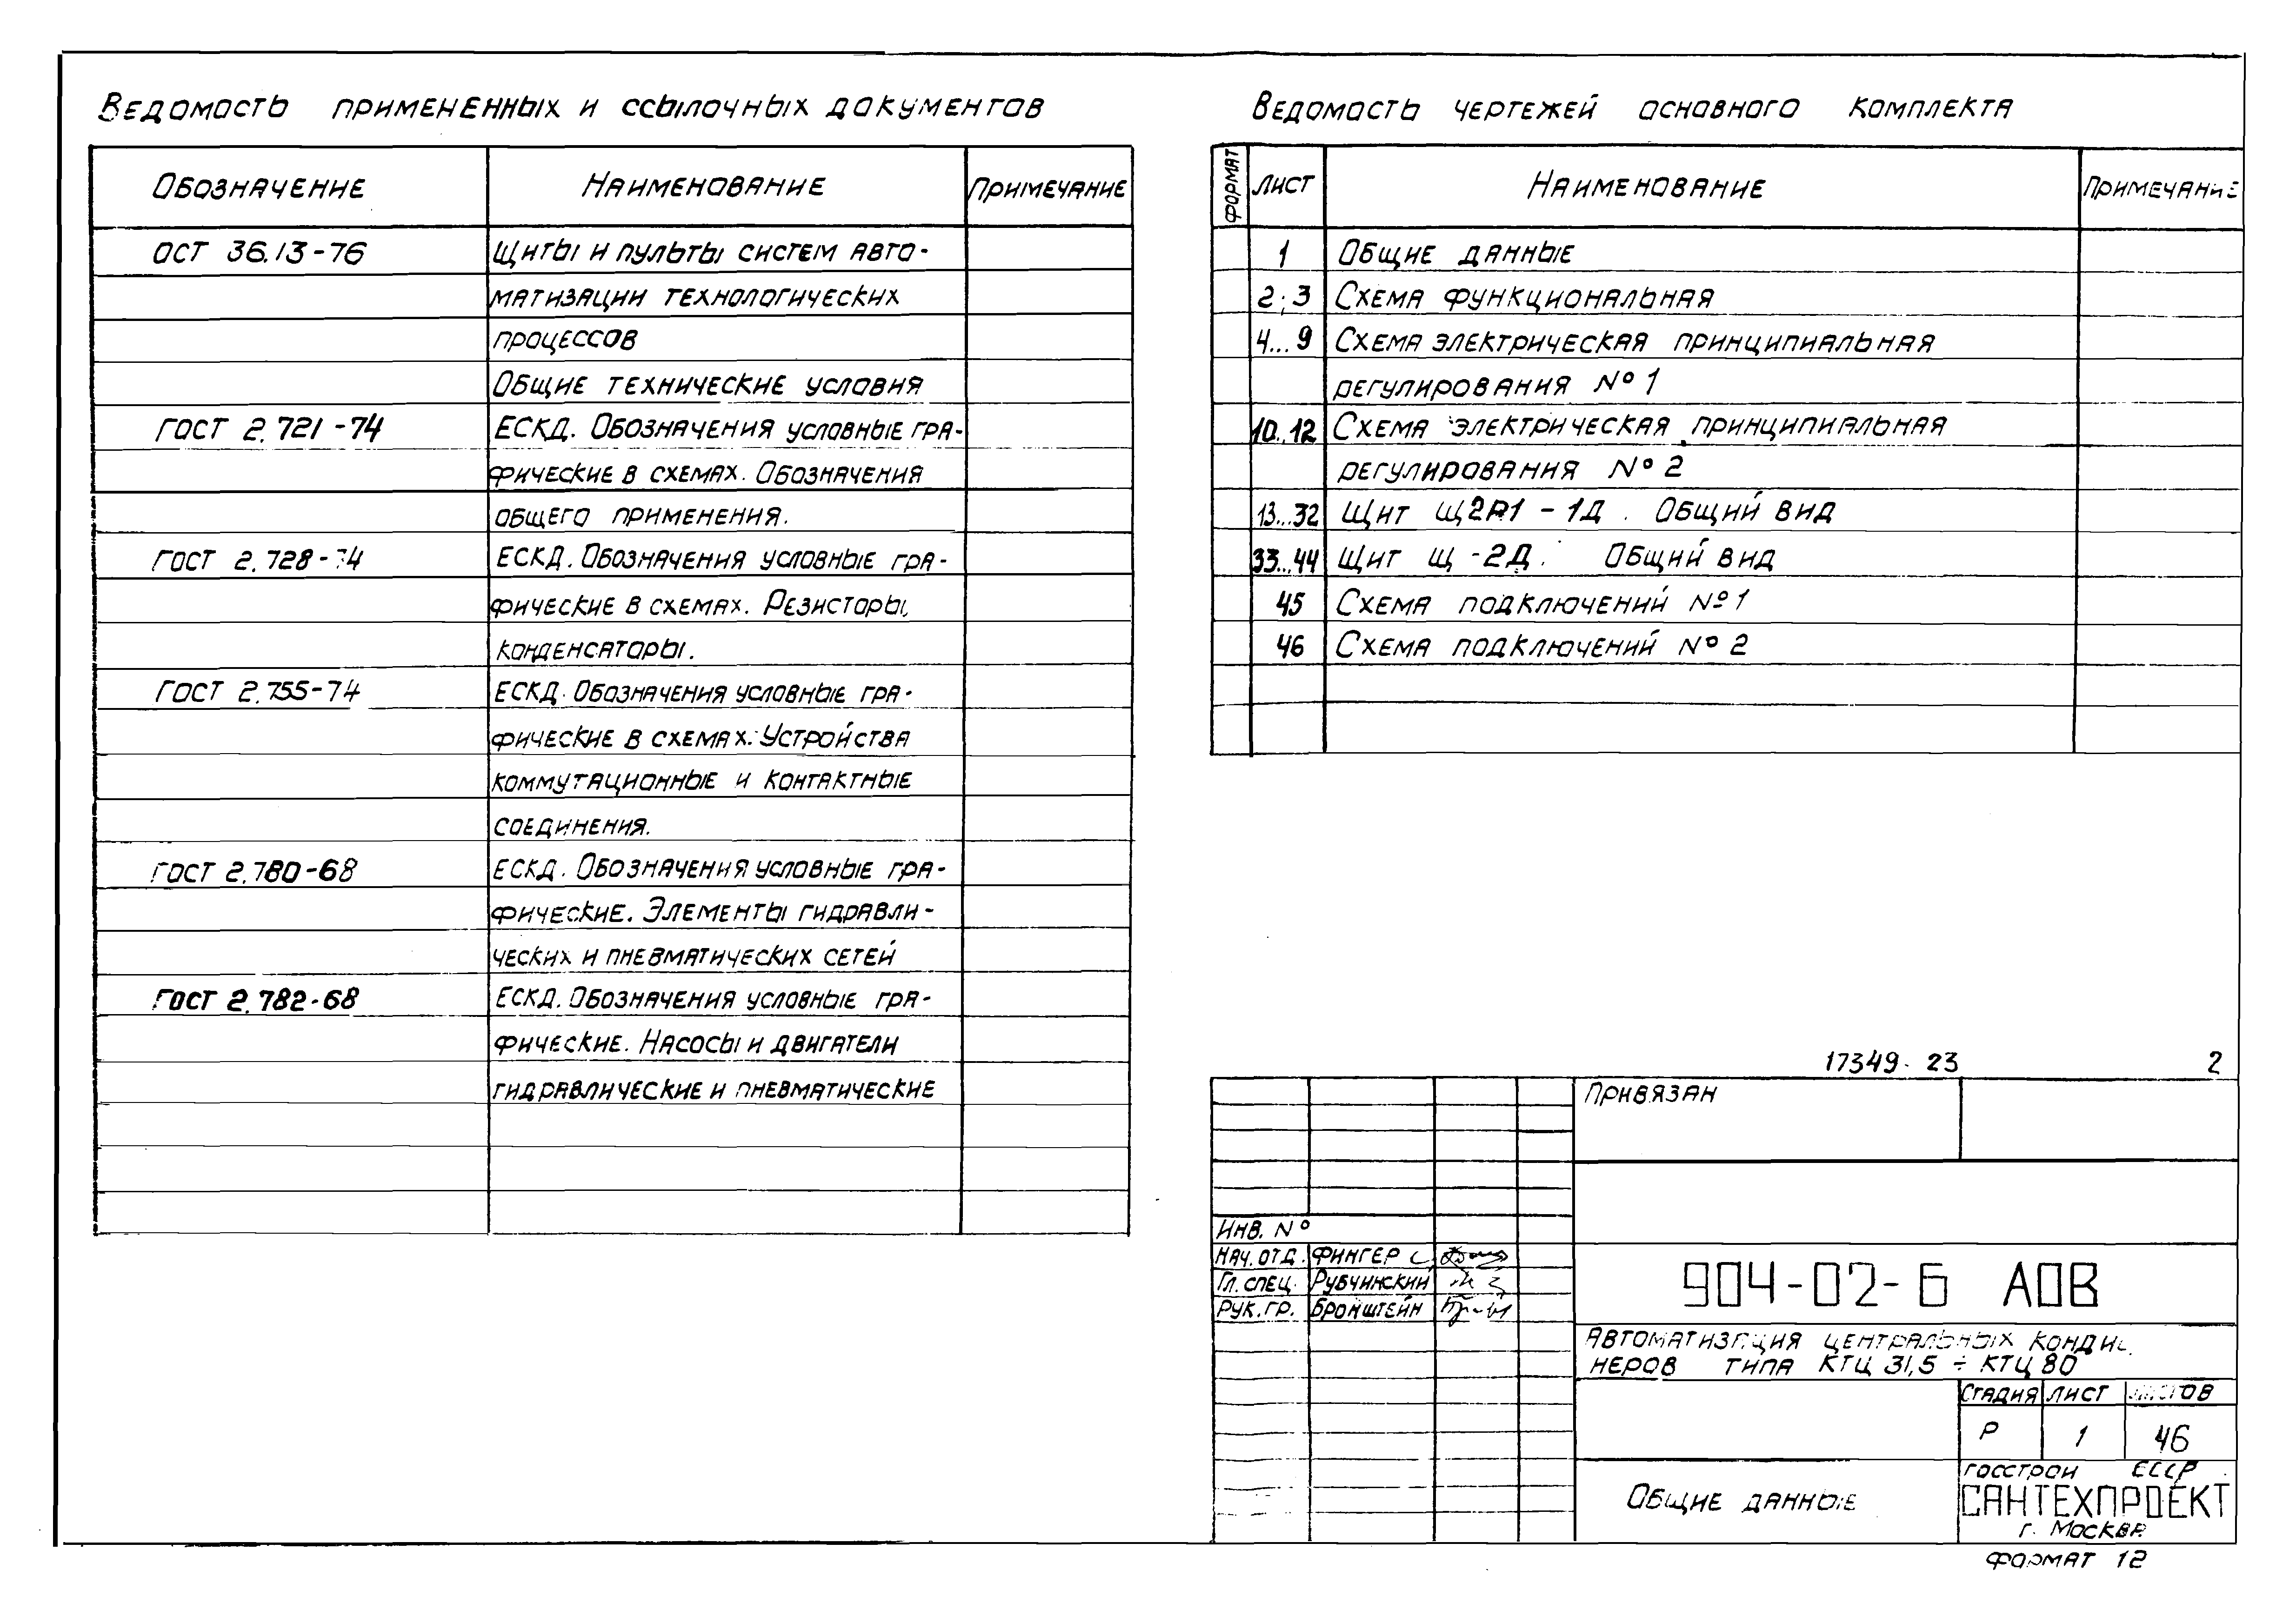 Ведомость примененных и ссылочных документов
Обозначение Наименование Примечание
ОСТ 36.13-76 Щиты и пульты систем авто-
матизации технологических
процессов
Общие технические условия
ГОСТ 2.721-74 ЕСКД. Обозначения условные гра-
фические в схемах. Обозначения
общего применения.
ГОСТ 2.728-74 ЕСКД. Обозначения условные гра-
фические в схемах. Резисторы,
конденсаторы.
ГОСТ 2.755-74 ЕСКД. Обозначения условные гра-
фические в схемах. Устройства
коммутационные и контактные
соединения.
ГОСТ 2.780-68 ЕСКД. Обозначения условные гра-
фические. Элементы гидравли-
ческих и пневматических сетей
ГОСТ 2.782-68 ЕСКД. Обозначения условные гра-
фические. Насосы и двигатели
гидравлические и пневматические
Ведомость чертежей основного комплекта
Формат Лист Наименование Примечание
1 Общие данные
2; 3 Схема функциональная
4...9 Схема электрическая принципиальная
регулирования №1
10...12 Схема электрическая принципиальная
регулирования №2
13...32 Щит Щ2Р1-1Д. Общий вид
33...44 Щит Щ-2Д. Общий вид
45 Схема подключений №1
46 Схема подключений №2
17349-23 2
Привязан
Инв. №
Нач. отд. Фингер
Гл. спец. Рубчинский
Рук. гр. Бронштейн
904-02-6 АОВ
Автоматизация центральных конди
неров типа КТЦ 31,5 ÷ КТЦ 80
Стадия Лист Листов
Р 1 46
Общие данные
Госстрой СССР
САНТЕХПРОЕКТ
г. Москва
Формат 12